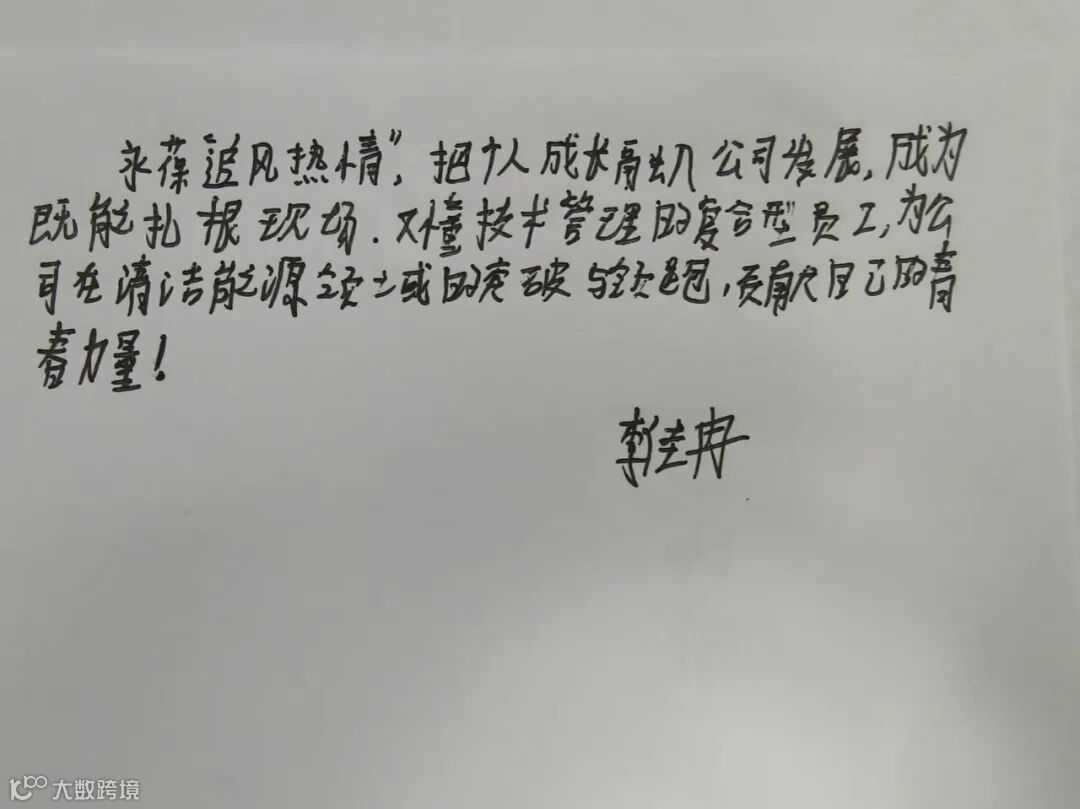 永葆追风热情”，把个人成长融入公司发展，成为
既能扎根现场，又懂技术管理的复合型员工，为公
司在清洁能源领域的突破与领跑，贡献自己的青
春力量！
大数跨境